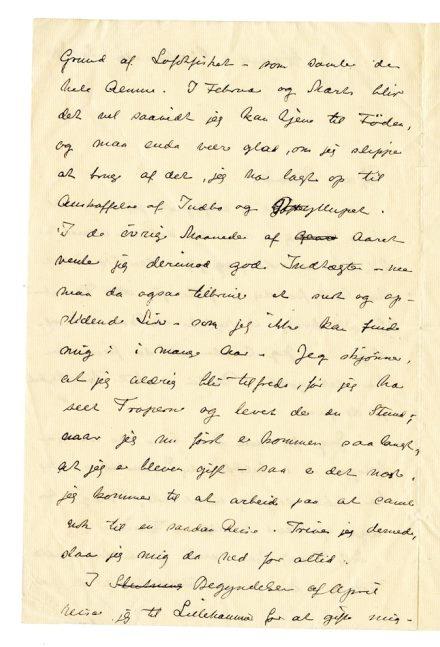 Grund af Lofotfisket – som samler den
hele Aemne. I Februar og Marts blir
det vel saavidt jeg kan tjene til Føden,
og maa endda være glad, om jeg slipper
at bruge af det, jeg har lagt op til
Anskaffelse af Indbo og Bryllupet.
I de øvrige Maaneder af Aaret
venter jeg derimod gode Indtægter – men
maa da ogsaa tilbringe et surt og op-
slidende Liv – som jeg ikke kan finde
mig i i mange Aar. Jeg skjønner,
at jeg aldrig blir tilfreds, før jeg har
seet Troperne og levet der en Stund;
naar jeg nu først er kommen saa langt,
at jeg er bleven gift – saa er det næste,
jeg kommer til at arbeide paa at samle
nok til en saadan Reise. Trives jeg dernede,
slaar jeg mig da ned for altid.
I Slutning Begyndelsen af April
reiser jeg til Lillehammer for at gifte mig –